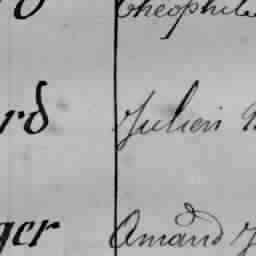 Theophile
rd Julien
ger Amand